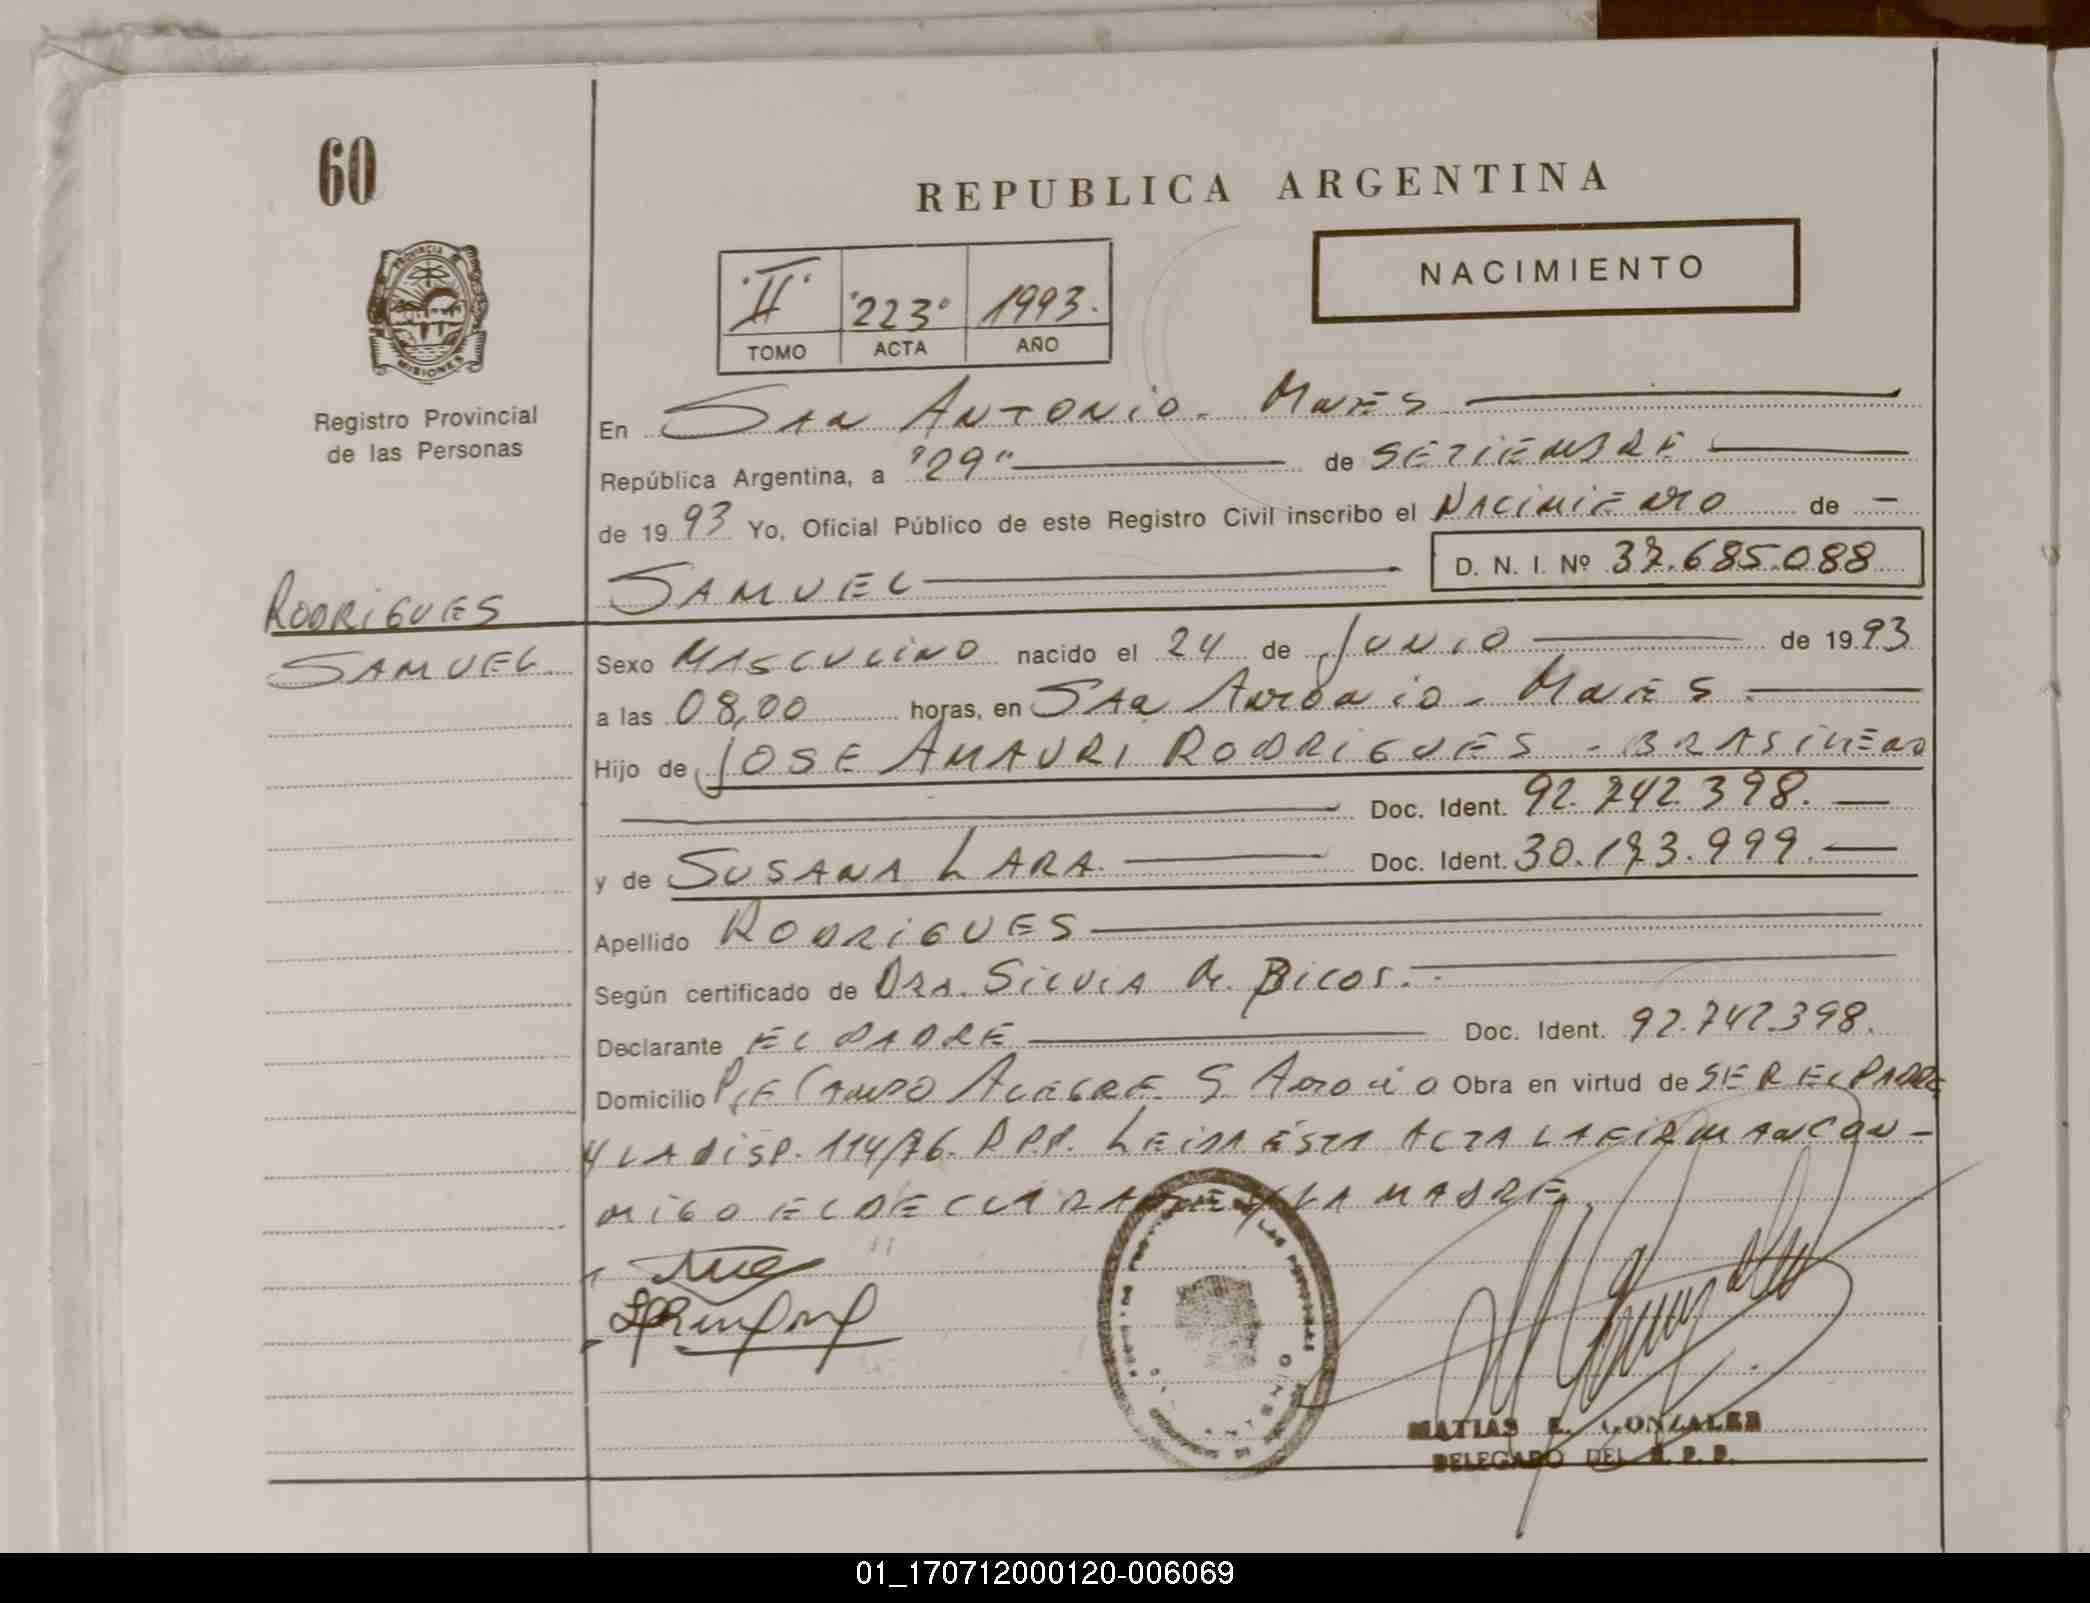 60
REPUBLICA ARGENTINA
NACIMIENTO
"II" "223" 1993.
TOMO ACTA AÑO
PROVINCIA DE
MISIONES
Registro Provincial
de las Personas
En San Antonio - Mnes
República Argentina, a "29" de SETIEMBRE
de 1993 Yo, Oficial Público de este Registro Civil inscribo el NACIMIENTO de -
D. N. I. Nº 37.685.088
SAMUEL
RODRIGUES
SAMUEL
Sexo MASCULINO nacido el 24 de JUNIO de 1993
a las 08,00 horas, en San Antonio - Mnes
Hijo de JOSE AMAURI RODRIGUES - BRASILEÑO
Doc. Ident. 92.742.398.
y de SUSANA LARA. Doc. Ident. 30.173.999.
Apellido RODRIGUES
Según certificado de DRA. SILVIA de BICOS.
Declarante EL PADRE Doc. Ident. 92.742.398.
Domicilio Pje CAMPO ALEGRE S. Antonio Obra en virtud de SER EL PADRE
Y LA DISP. 114/76. R.P.P. LEIDA ESTA ACTA LA FIRMAN CON-
MIGO EL DECLARANTE Y LA MADRE.
MATIAS E. GONZALEZ
DELEGADO DEL R. P. P.
01_170712000120-006069